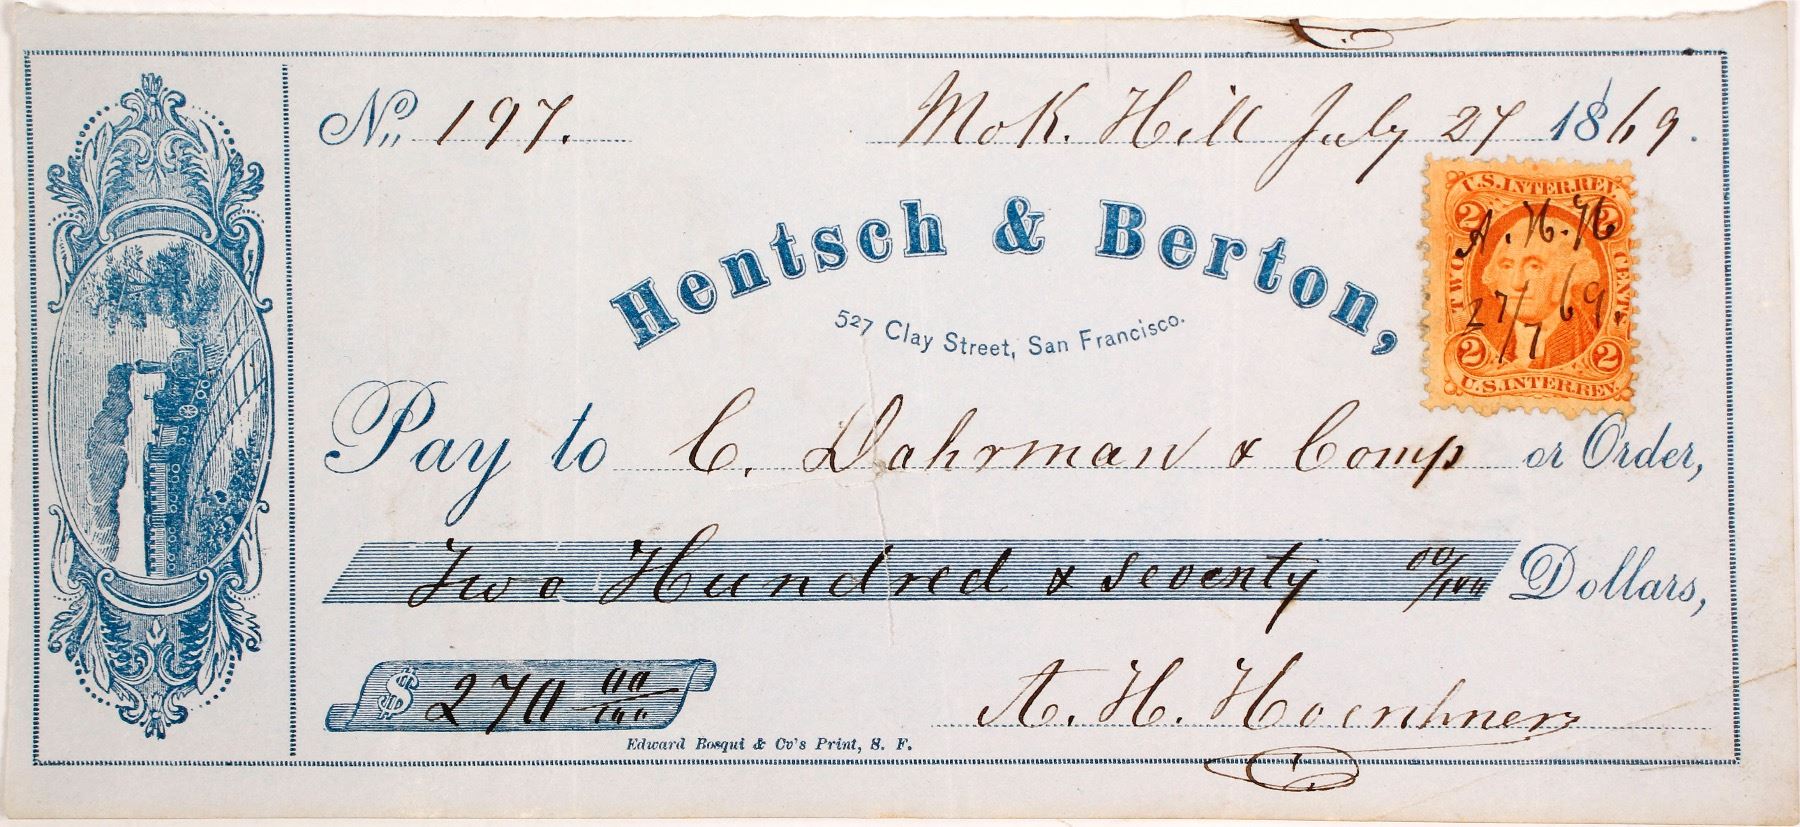 No. 197.
Mok. Hill July 27 1869.
U.S. INTER. REV.
2 2
A. H. H
TWO CENTS
27/7 69.
2 2
U.S. INTER. REV.
Hentsch & Berton,
527 Clay Street, San Francisco.
Pay to C. Dahrman & Comp or Order,
Two Hundred & Seventy 00/100 Dollars,
$ 270 00/100
A. H.
Edward Bosqui & Co's Print, S. F.